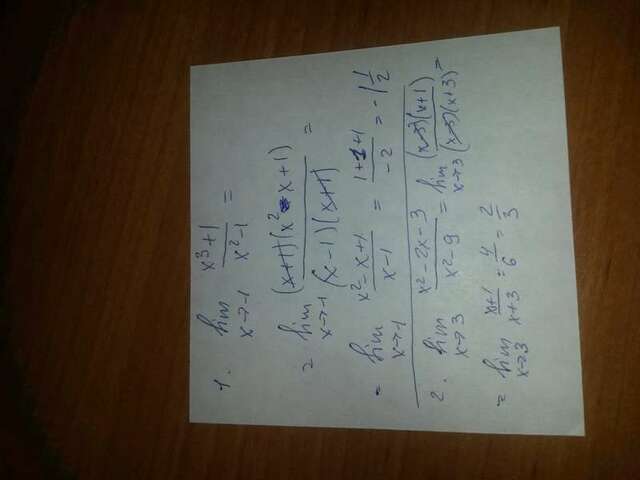 1. lim x→-1 x³+1 / x²-1 =
= lim x→-1 (x+1)(x²-x+1) / (x-1)(x+1) =
= lim x→-1 x²-x+1 / x-1 = 1+1+1 / -2 = -1 1/2
2. lim x→3 x²-2x-3 / x²-9 = lim x→3 (x-3)(x+1) / (x-3)(x+3) =
= lim x→3 x+1 / x+3 = 4/6 = 2/3